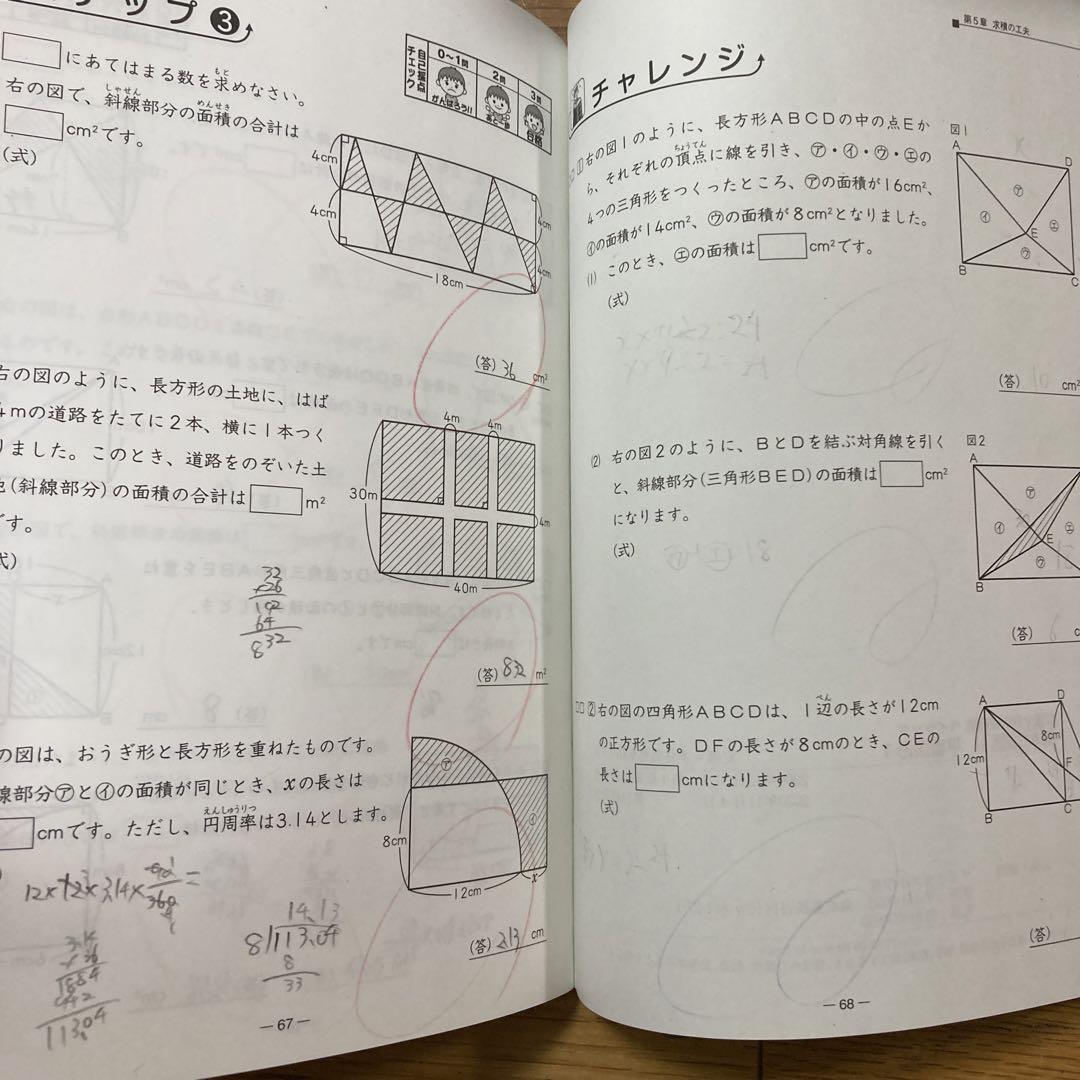 ップ ❸
自己採点チェック
0〜1問
2問
3問
がんばろう!!
あと一歩
合格
□にあてはまる数を求めなさい。
もと
右の図で、斜線部分の面積の合計は
しゃせん
めんせき
□cm²です。
(式)
4cm
4cm
4cm
4cm
18cm
(答) 36 cm²
右の図のように、長方形の土地に、はば
4mの道路をたてに2本、横に1本つく
りました。このとき、道路をのぞいた土
地(斜線部分)の面積の合計は□m²
です。
式)
4m
4m
30m
4m
40m
32
×26
192
64
832
(答) 832 m²
の図は、おうぎ形と長方形を重ねたものです。
線部分㋐と㋑の面積が同じとき、xの長さは
□cmです。ただし、円周率は3.14とします。
えんしゅうりつ
㋐
㋑
8cm
12cm
x
12×12×3.14×
360
3.14
36
1884
942
113.04
14.13
8)113.04
8
33
(答) 2.13 cm
—67—
第5章 求積の工夫
チャレンジ
1 右の図1のように、長方形ABCDの中の点Eか
ら、それぞれの頂点に線を引き、㋐・㋑・㋒・㋓の
ちょうてん
4つの三角形をつくったところ、㋐の面積が16cm²、
㋑の面積が14cm²、㋒の面積が8cm²となりました。
(1) このとき、㋓の面積は□cm²です。
(式)
図1
A
D
㋐
㋑
E
㋓
㋒
B
C
(答) 10 cm²
(2) 右の図2のように、BとDを結ぶ対角線を引く
と、斜線部分(三角形BED)の面積は□cm²
になります。
(式)
㋒+㋓ 18
図2
A
㋐
㋑
㋓
E
㋒
B
(答) 6 c
2 右の図の四角形ABCDは、1辺の長さが12cm
ぺん
の正方形です。DFの長さが8cmのとき、CEの
長さは□cmになります。
(式)
A
D
8cm
12cm
F
B
C
(答)
—68—